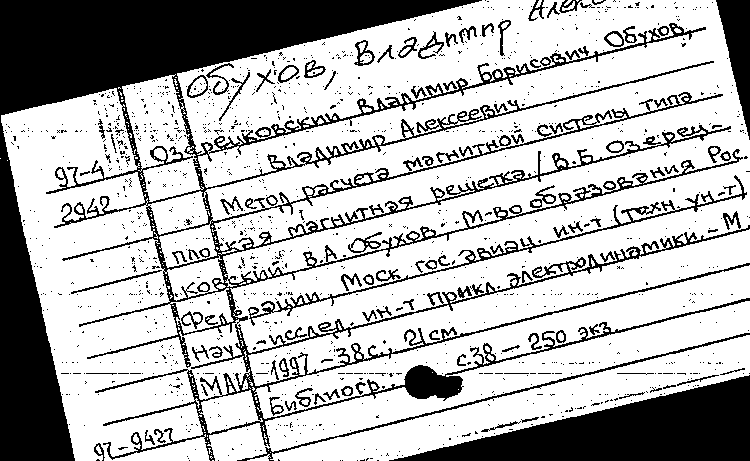 Обухов, Владимир Алекс
Озерецковский, Владимир Борисович, Обухов,
97-4 Владимир Алексеевич.
2942 Метод расчета магнитной системы типа
плоская магнитная решетка. / В.Б. Озерец-
ковский, В.А. Обухов; М-во образования Рос.
Федерации, Моск. гос. авиац. ин-т (техн. ун-т)
Науч.-исслед. ин-т прикл. электродинамики. - М.
МАИ, 1997. - 38 с.; 21 см.
Библиогр.: с.38 — 250 экз.
97-9427